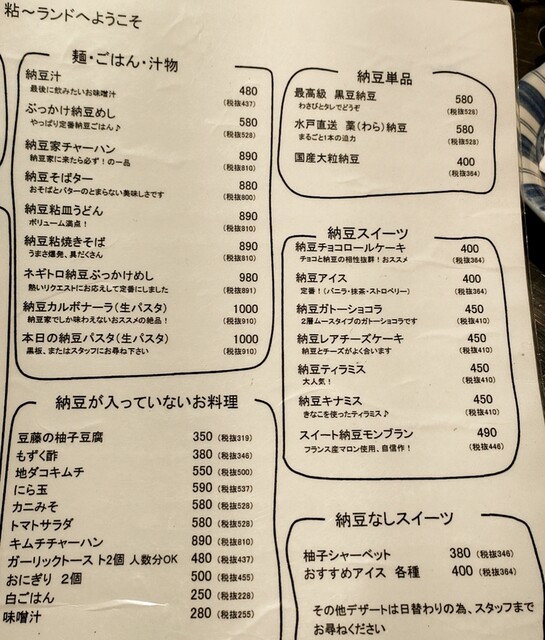 粘～ランドへようこそ
麺・ごはん・汁物
納豆汁 480
最後に飲みたいお味噌汁 (税抜437)
ぶっかけ納豆めし 580
やっぱり定番納豆ごはん♪ (税抜528)
納豆家チャーハン 890
納豆家に来たら必ず！の一品 (税抜810)
納豆そばター 880
おそばとバターのとまらない美味しさです (税抜800)
納豆粘皿うどん 890
ボリューム満点！ (税抜810)
納豆粘焼きそば 890
うまさ爆発、具だくさん (税抜810)
ネギトロ納豆ぶっかけめし 980
熱いリクエストにお応えして定番にしました (税抜891)
納豆カルボナーラ(生パスタ) 1000
納豆家でしか味わえないおススメの絶品！ (税抜910)
本日の納豆パスタ(生パスタ) 1000
黒板、またはスタッフにお尋ね下さい (税抜910)
納豆が入っていないお料理
豆藤の柚子豆腐 350 (税抜319)
もずく酢 380 (税抜346)
地ダコキムチ 550 (税抜500)
にら玉 590 (税抜537)
カニみそ 580 (税抜528)
トマトサラダ 580 (税抜528)
キムチチャーハン 890 (税抜810)
ガーリックトースト2個 人数分OK 480 (税抜437)
おにぎり 2個 500 (税抜455)
白ごはん 250 (税抜228)
味噌汁 280 (税抜255)
納豆単品
最高級 黒豆納豆 580
わさびとタレでどうぞ (税抜528)
水戸直送 藁(わら)納豆 580
まるごと1本の迫力 (税抜528)
国産大粒納豆 400
(税抜364)
納豆スイーツ
納豆チョコロールケーキ 400
チョコと納豆の相性抜群！おススメ (税抜364)
納豆アイス 400
定番！(バニラ・抹茶・ストロベリー) (税抜364)
納豆ガトーショコラ 450
2層ムースタイプのガトーショコラです (税抜410)
納豆レアチーズケーキ 450
納豆とチーズがよく合います (税抜410)
納豆ティラミス 450
大人気！ (税抜410)
納豆キナミス 450
きなこを使ったティラミス♪ (税抜410)
スイート納豆モンブラン 490
フランス産マロン使用、自信作！ (税抜446)
納豆なしスイーツ
柚子シャーベット 380 (税抜346)
おすすめアイス 各種 400 (税抜364)
その他デザートは日替わりの為、スタッフまで
お尋ねください